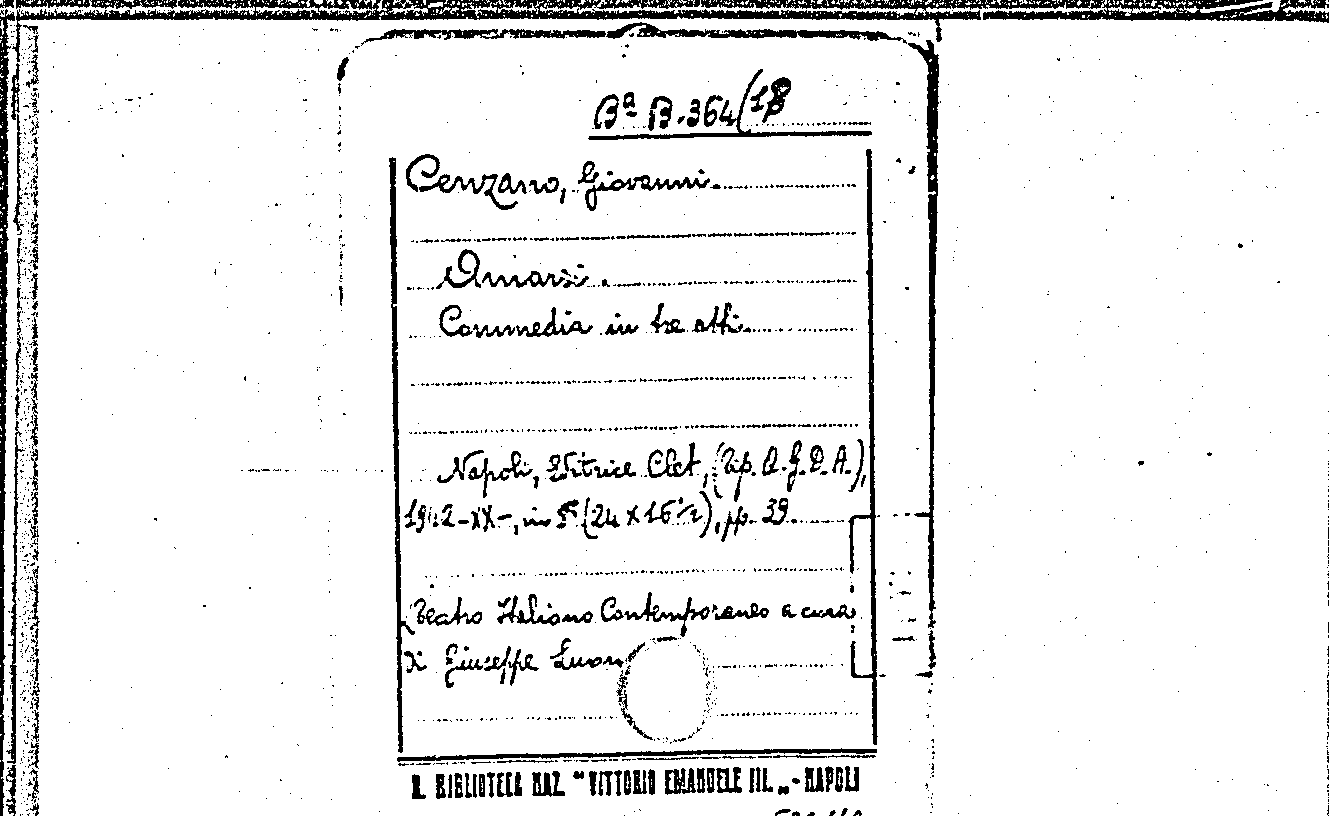 Bª B.364(18
Cenzano, Giovanni.
Amarsi.
Commedia in tre atti.
Napoli, Editrice Clet, (Tip. A.G.D.A.),
1942-XX-, in 8° (24 x 16½), pp. 39.
(Teatro Italiano Contemporaneo a cura
di Giuseppe
R. BIBLIOTECA NAZ. "VITTORIO EMANUELE III." - NAPOLI